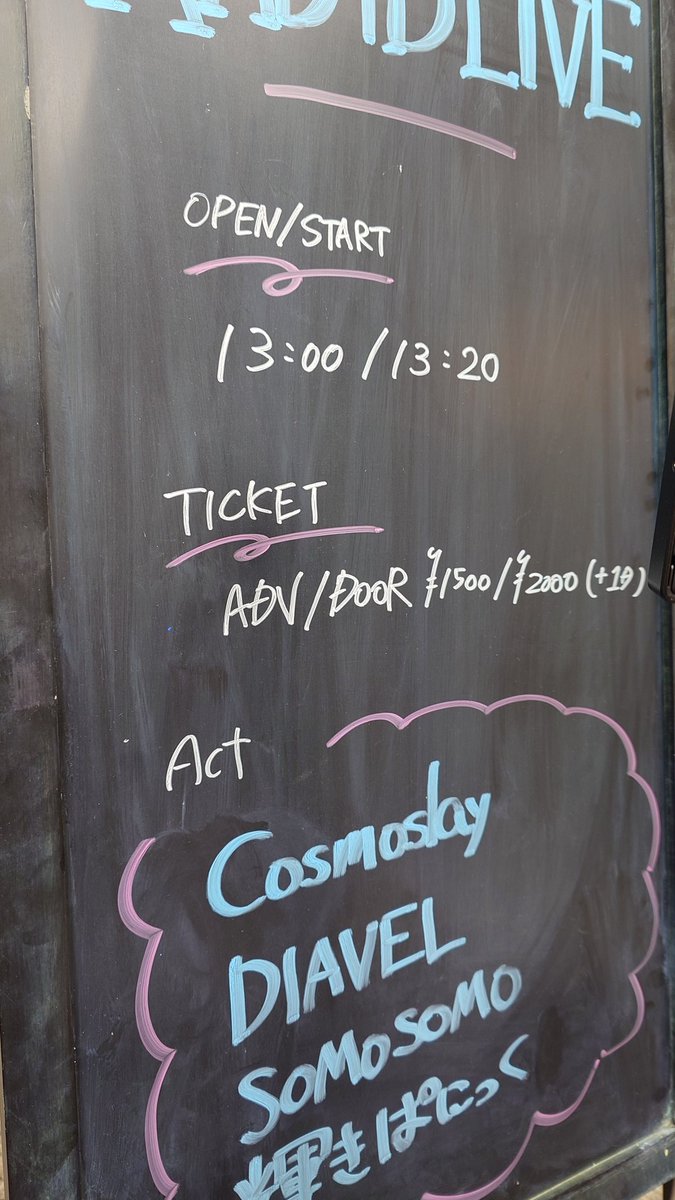 OPEN/START
13:00 / 13:20
TICKET
ADV/DOOR ¥1500/¥2000 (+1D)
Act
Cosmoslay
DIAVEL
SOMOSOMO
輝きぱにっく